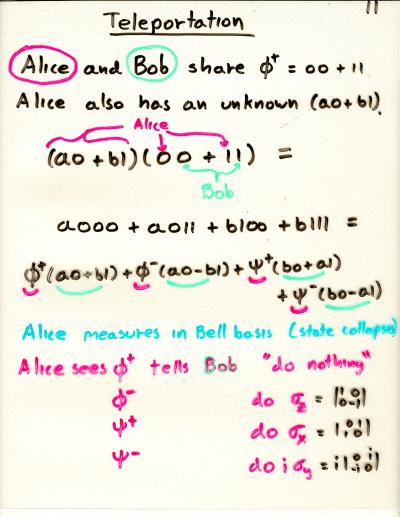 11
Teleportation
Alice and Bob share ϕ⁺ = 00 + 11
Alice also has an unknown (a0+b1).
Alice
(a0+b1)(00 + 11) =
Bob
a000 + a011 + b100 + b111 =
ϕ⁺(a0+b1) + ϕ⁻(a0-b1) + ψ⁺(b0+a1)
+ ψ⁻(b0-a1)
Alice measures in Bell basis (state collapses)
Alice sees ϕ⁺ tells Bob "do nothing"
ϕ⁻ do σz = |1 0; 0 -1|
ψ⁺ do σx = |0 1; 1 0|
ψ⁻ do i σy = i|0 -i; i 0|